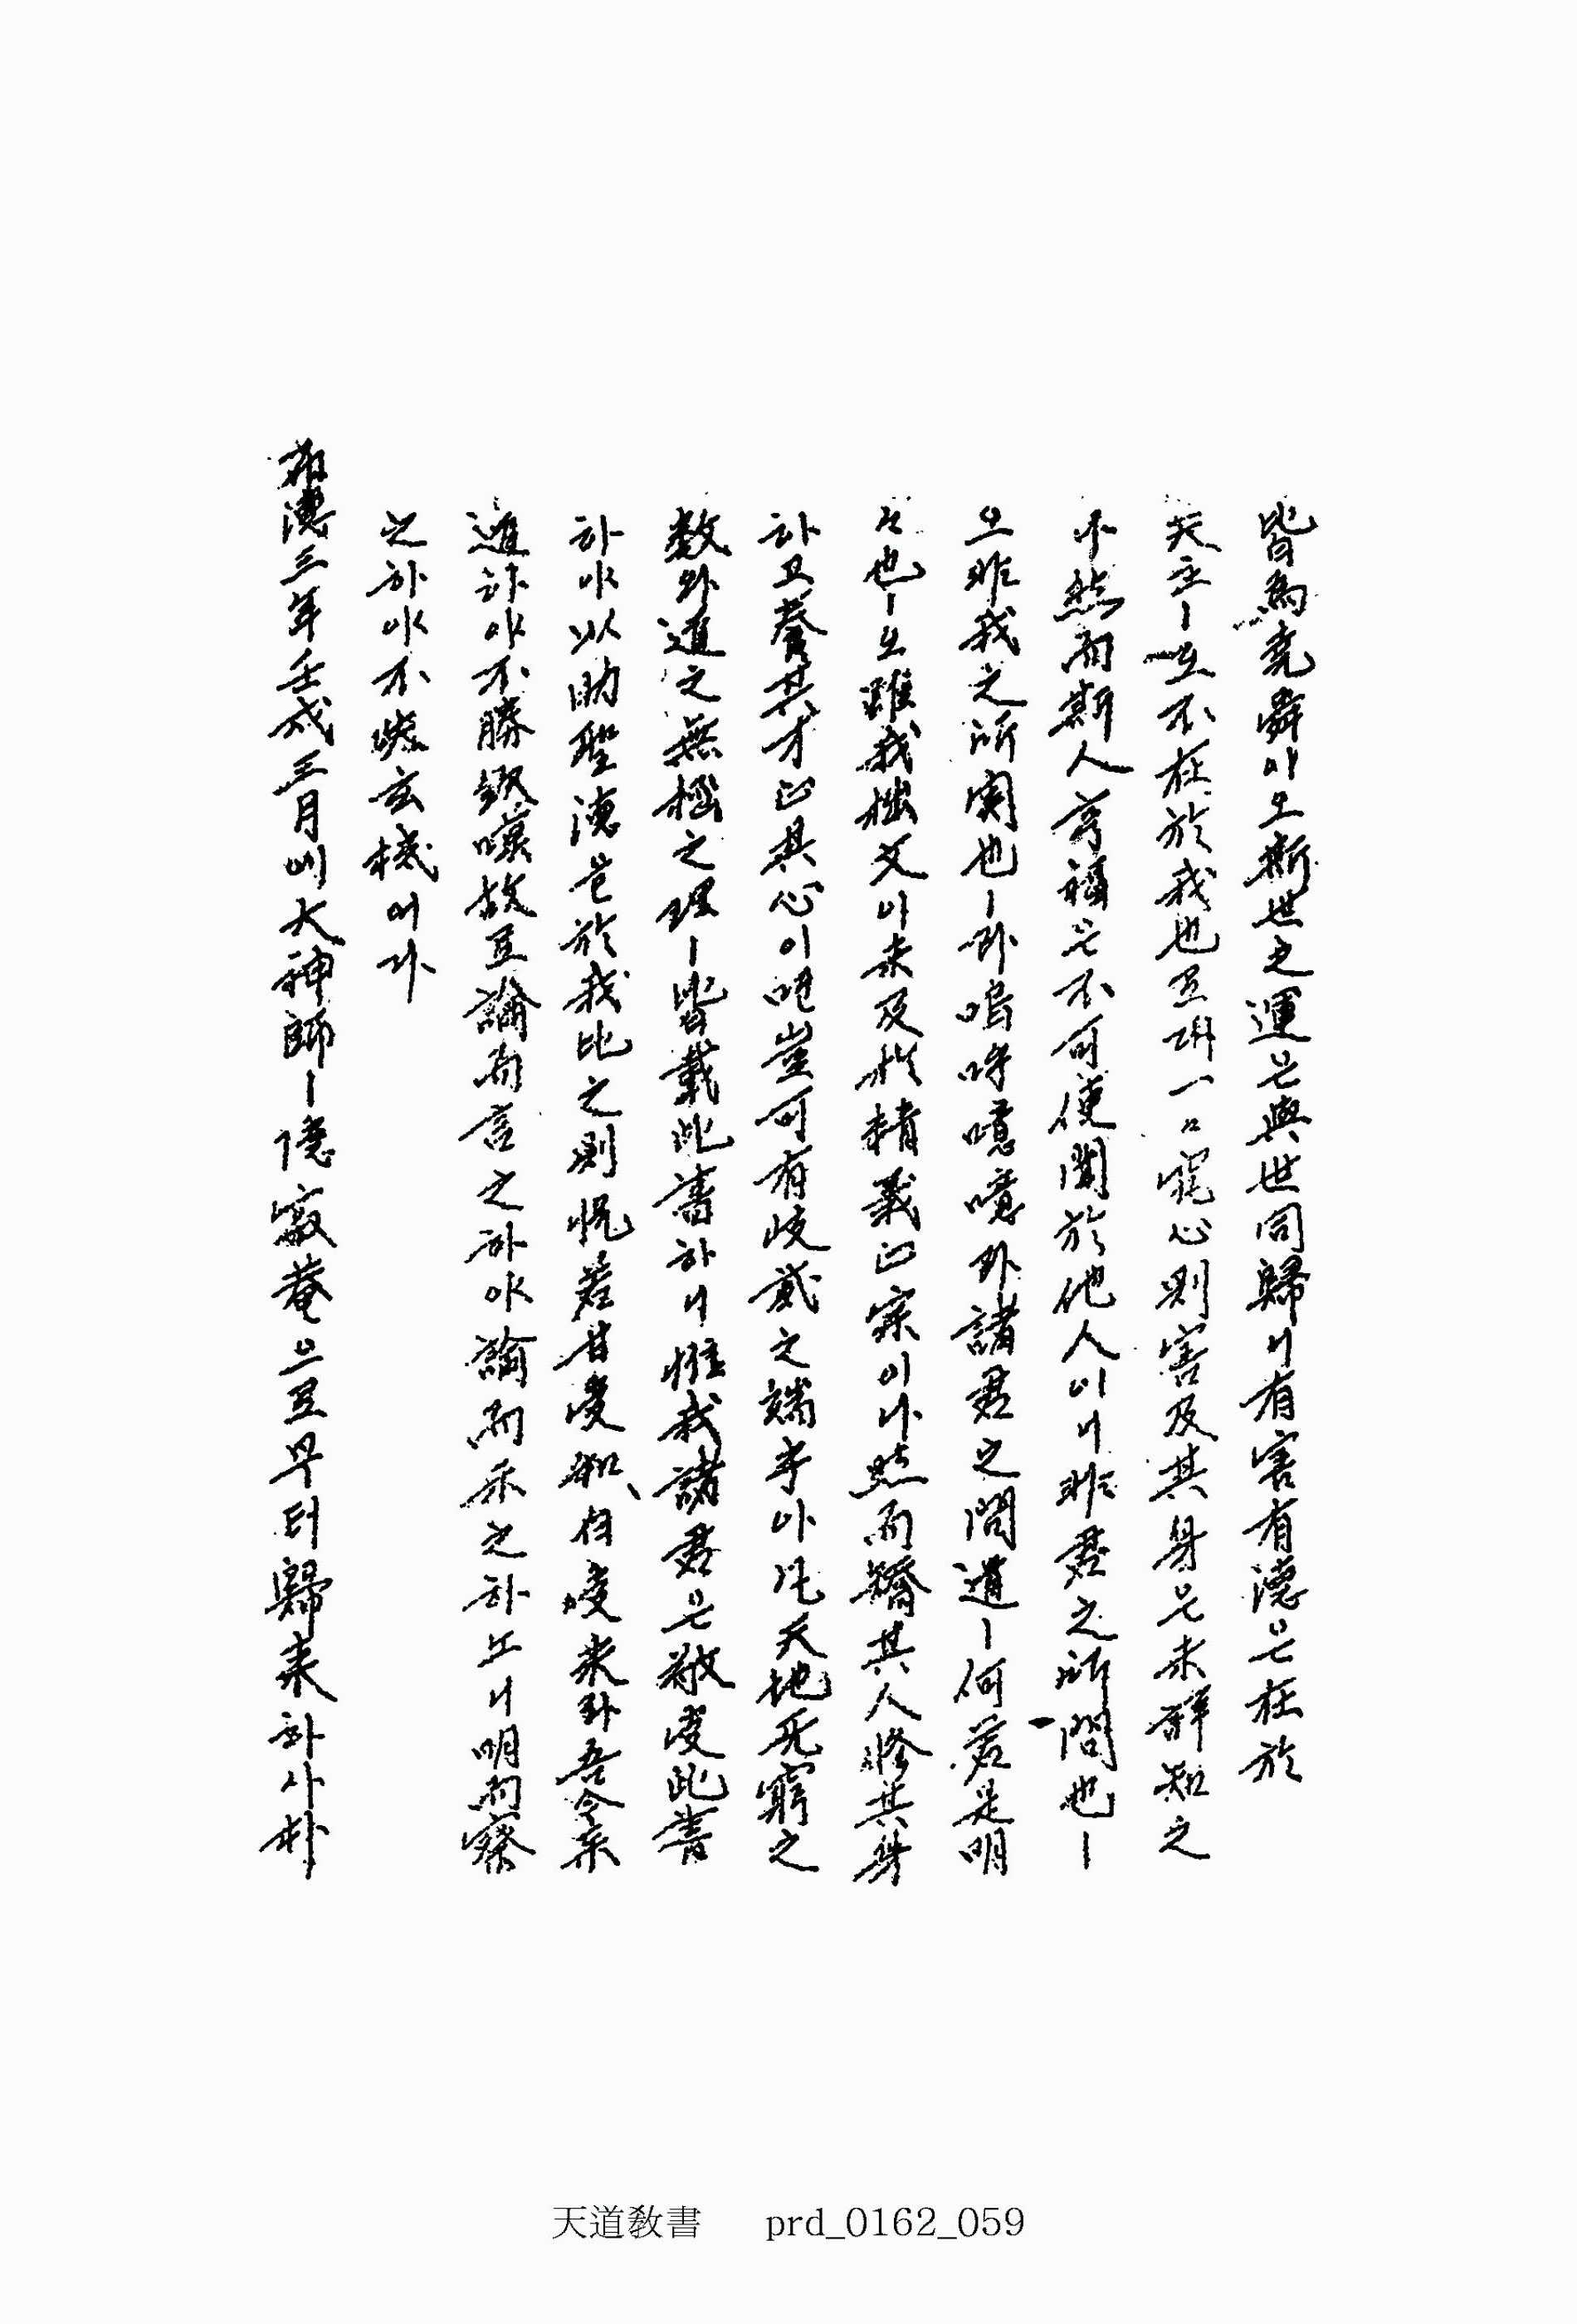 皆爲堯舜이오斯世之運은與世同歸니有害有德은在於
天主ㅣ오不在於我也로다一々究心則害及其身은未詳知之
不然而斯人享福은不可使聞於他人이니非君之所問也ㅣ
오非我之所關也ㅣ라嗚呼噫噫라諸君之問道ㅣ何若是明
々也ㅣ오雖我拙文이未及於精義正宗이나然而矯其人修其身
하고養其才正其心이니豈可有岐貳之端乎아凡天地无窮之
數와道之無極之理ㅣ皆載此書하니惟我諸君은敬受此書
하야以助聖德은於我比之則怳若甘受和、白受采라吾今樂
道하야不勝欽嘆故로論而言之하야諭而示之하노니明而察
之하야不失玄機어다
布德三年壬戌三月에大神師ㅣ隱寂菴으로부터歸來하사朴
天道敎書 prd_0162_059